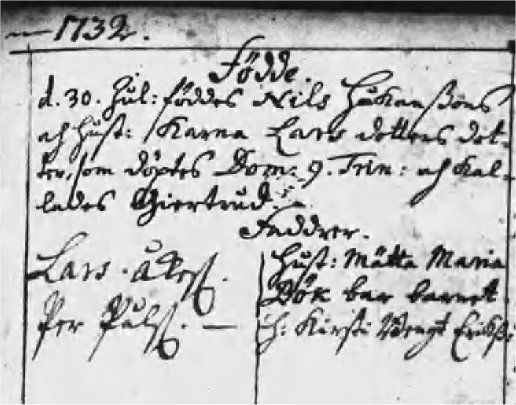 1732.
Födde.
d. 30. Jul: föddes Nils Håkanßons
och Hust: Karna Lars dotters dot-
ter, som döptes Dom: 9. Trin: och kal-
lades Giertrud.
Faddrar.
Lars Åkess.
Per Påls.
Hust: Mätta Maria
Bök bar barnet
H: Kirsti Bengt Erikß: